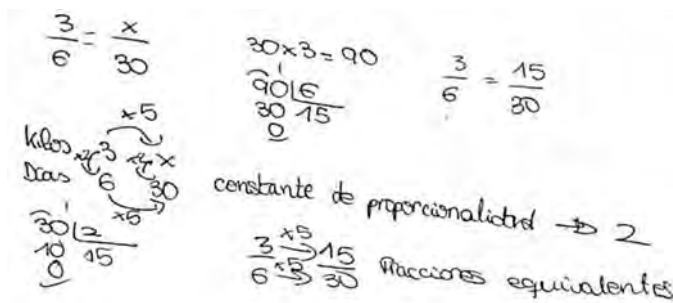 3/6 = x/30
30×3=90
90 | 6
30 15
0
3/6 = 15/30
×5
Kilos 3 x
Dias 6 30
×5
30 | 2
10 15
0
constante de proporcionalidad → 2
×5
3/6 15/30 fracciones equivalentes
×5